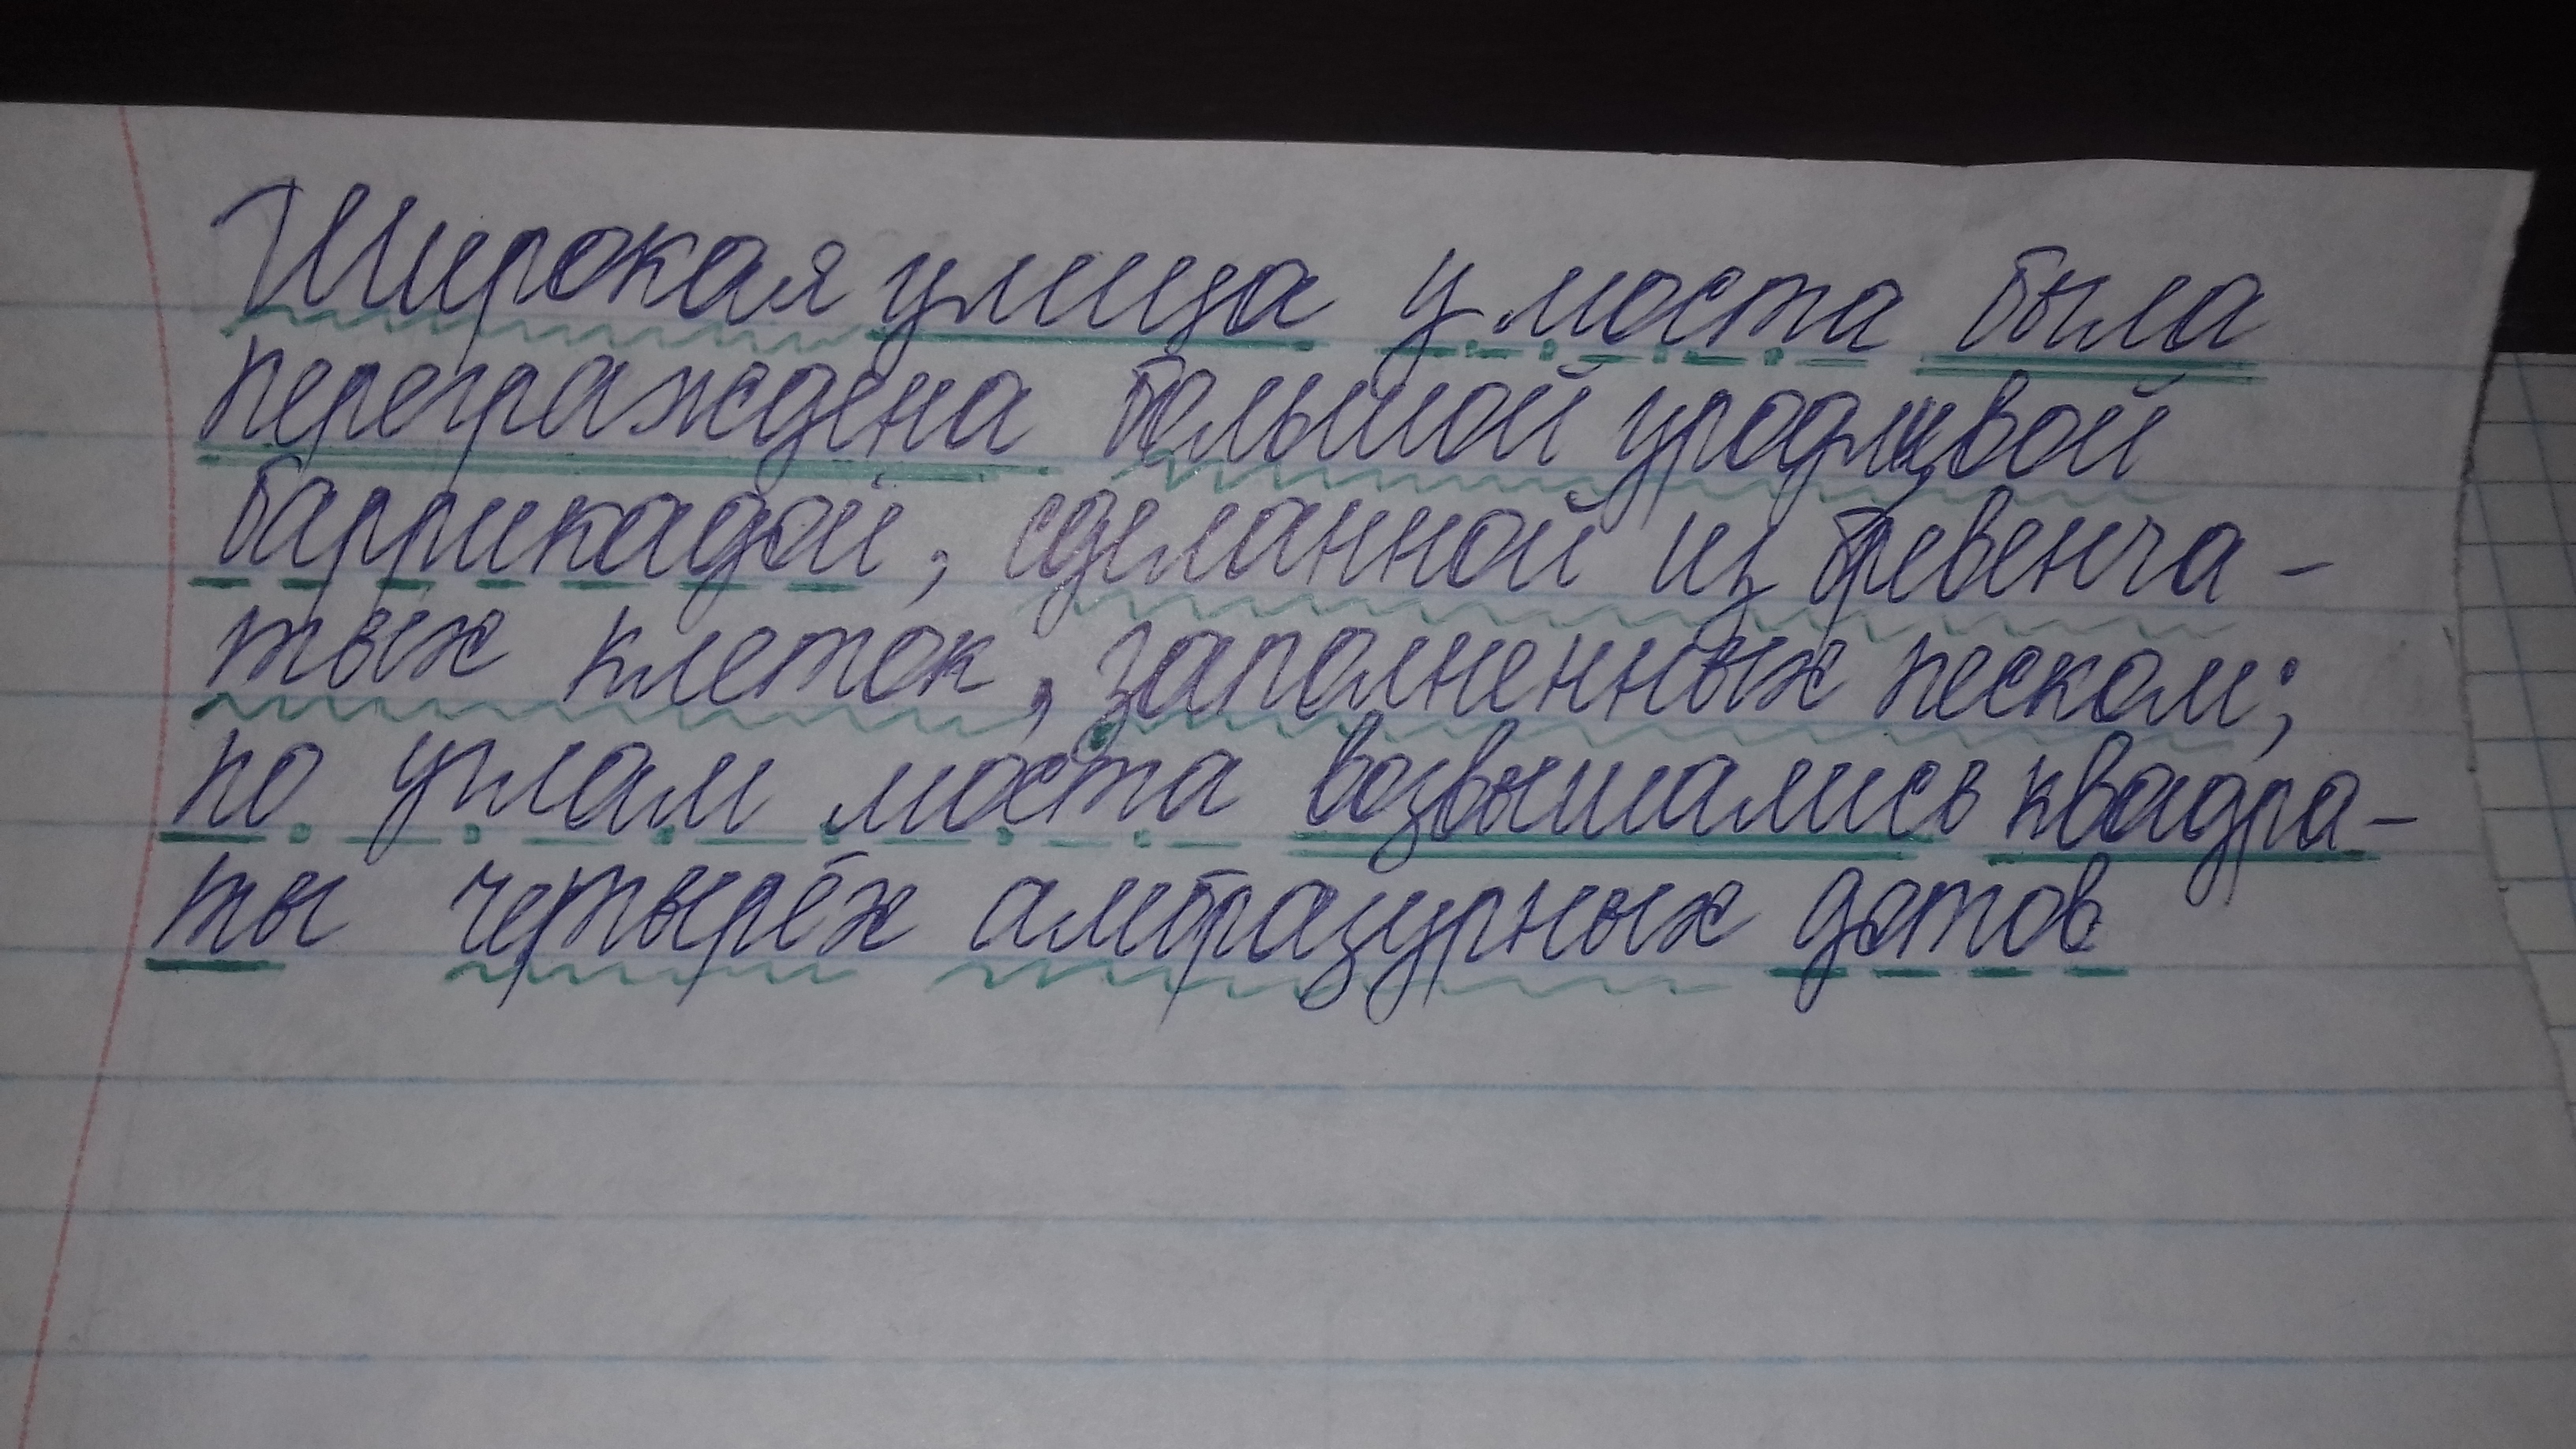 Широкая улица у моста была
переграждена большой уродливой
баррикадой, сделанной из бревенча-
тых клеток, заполненных песком;
по углам моста возвышались квадра-
ты четырёх амбразурных дотов